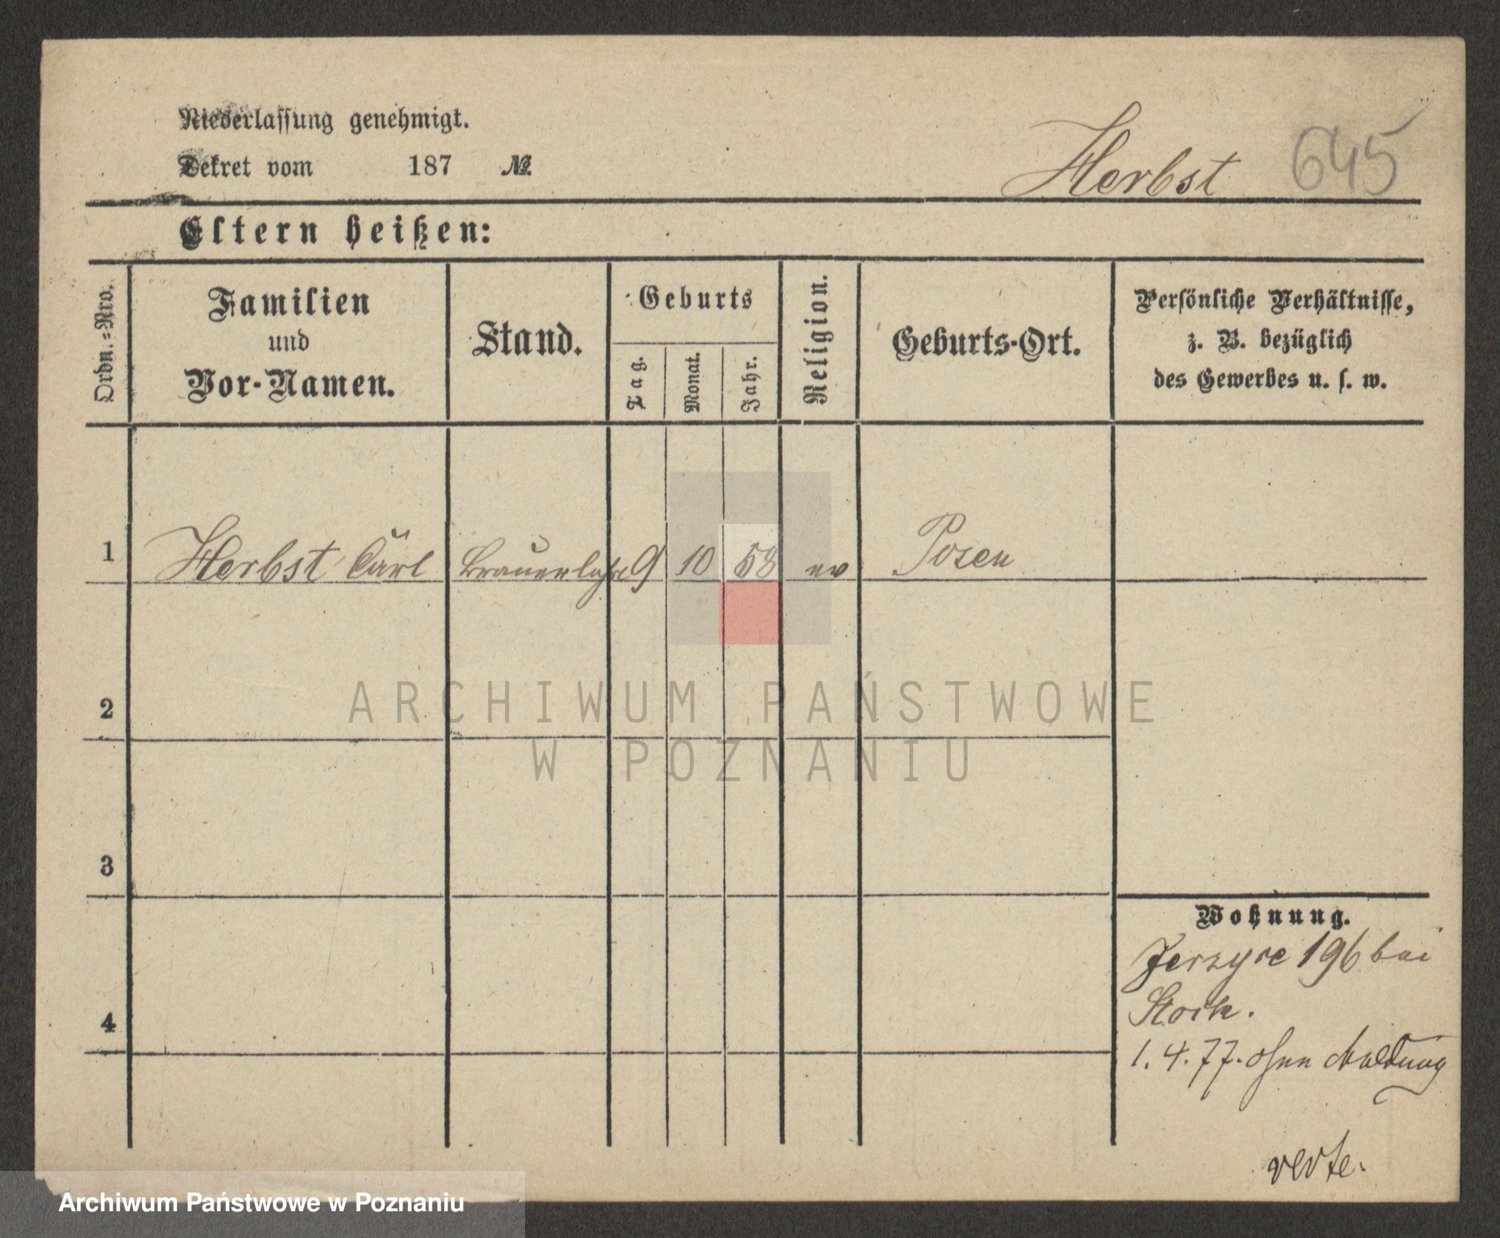 Niederlassung genehmigt.
Dekret vom 187 №
Herbst 645
Eltern heißen:
Ordn.=Nro.
Familien
und
Vor-Namen.
Stand.
Geburts
Tag.
Monat.
Jahr.
Religion.
Geburts-Ort.
Persönliche Verhältnisse,
z. B. bezüglich
des Gewerbes u. s. w.
1 Herbst Carl 9 10 58 ev Posen
2
3
4
Wohnung.
Jerzyce 196 bei
Stock.
1. 4. 77. ohne Meldung
verte.
ARCHIWUM PAŃSTWOWE
W POZNANIU
Archiwum Państwowe w Poznaniu